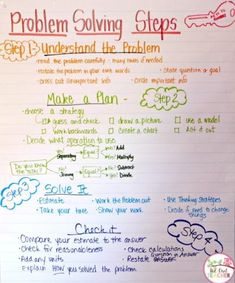 Problem Solving Steps
Step 1: Understand the Problem
· read the problem carefully - many times if needed
· restate the problem in your own words · State question & goal
· cross out unimportant info · Circle important info
Make a Plan - Step 2
- choose a strategy
guess and check draw a picture use a model
Work backwards create a chart Act it out
- Decide what operation to use
Do you know the total?
Yes
Separating
Equal?
No
Joining
Equal?
Add
Multiply
Subtract
Divide
Step 3 Solve It
· Estimate · Work the Problem Out · Use Thinking Strategies
· Take your time · Show your work · Decide if need to change things
Check it Step 4
· Compare your estimate to the answer
· Check for reasonableness · Check calculations
· Add any units · Restate summary in answer
· Explain HOW you solved the problem.